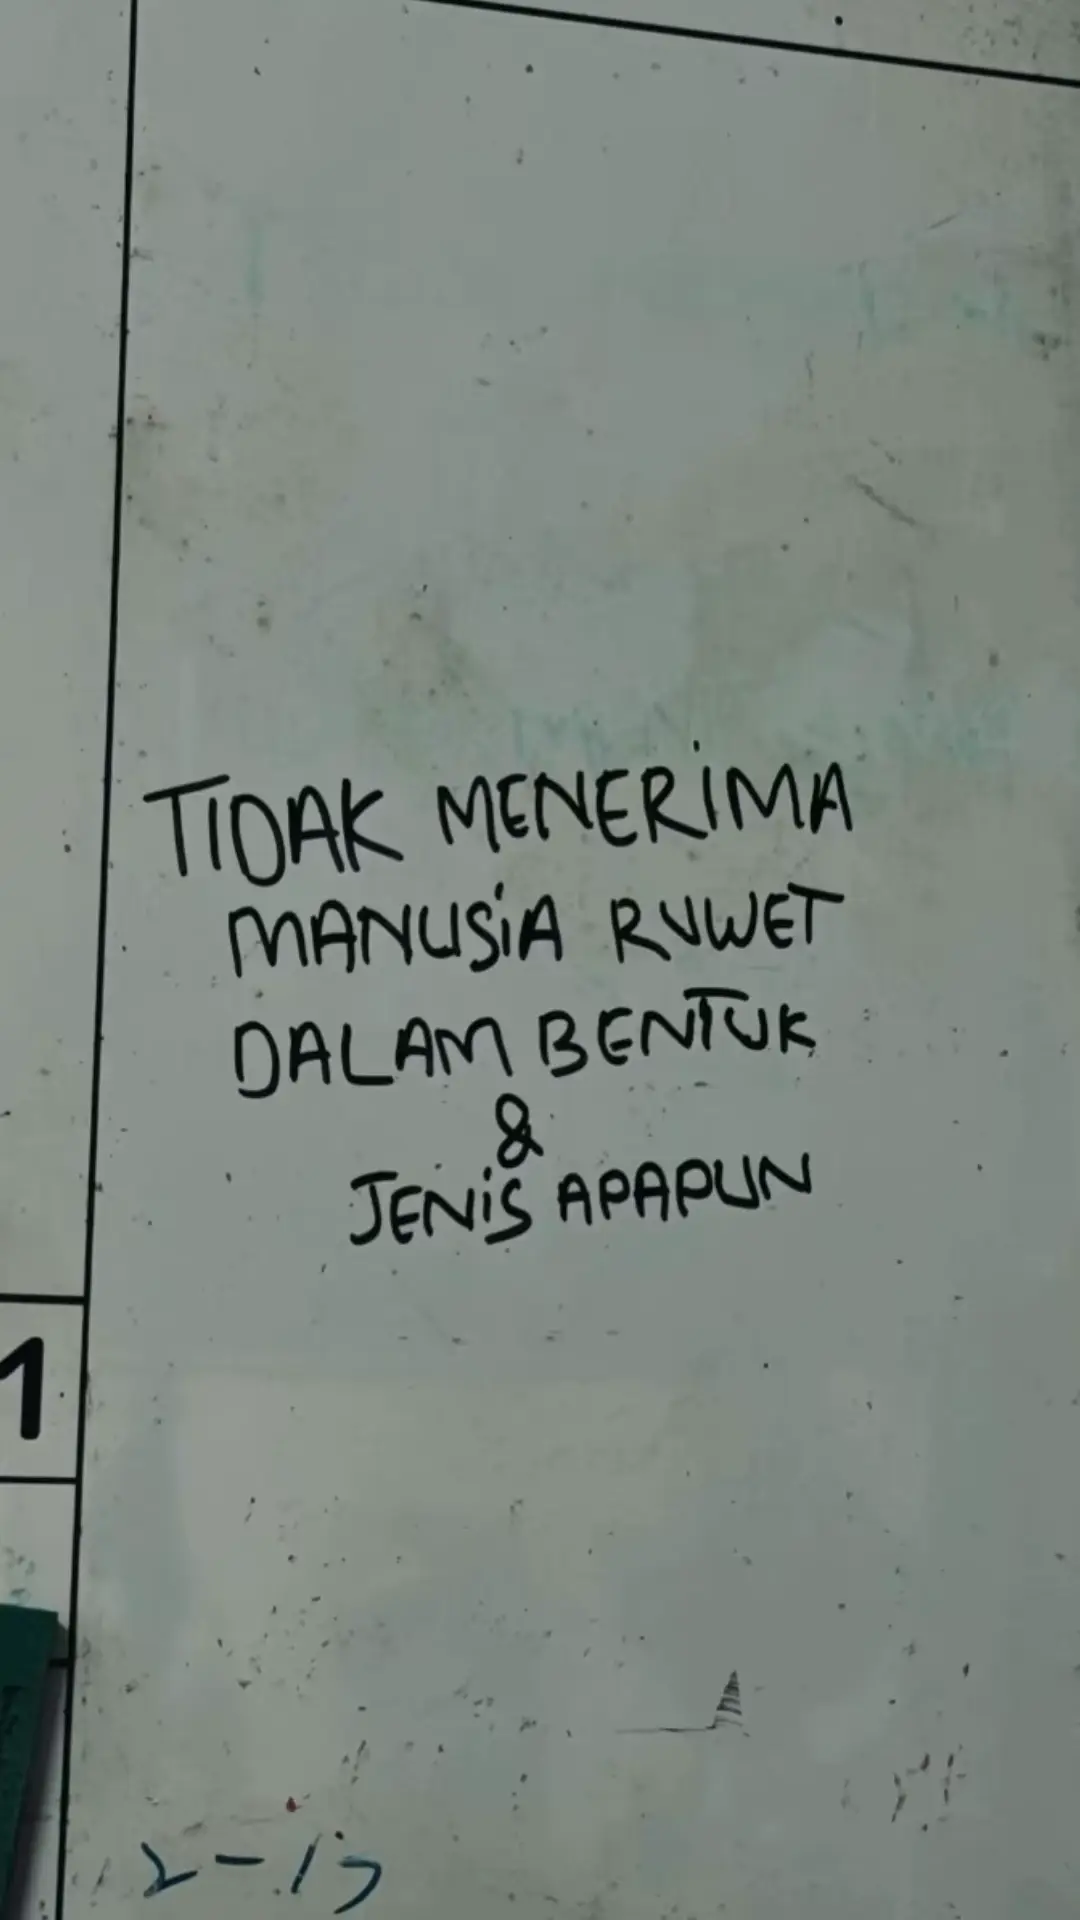 TIDAK MENERIMA
MANUSIA RUWET
DALAM BENTUK
&
JENIS APAPUN
1